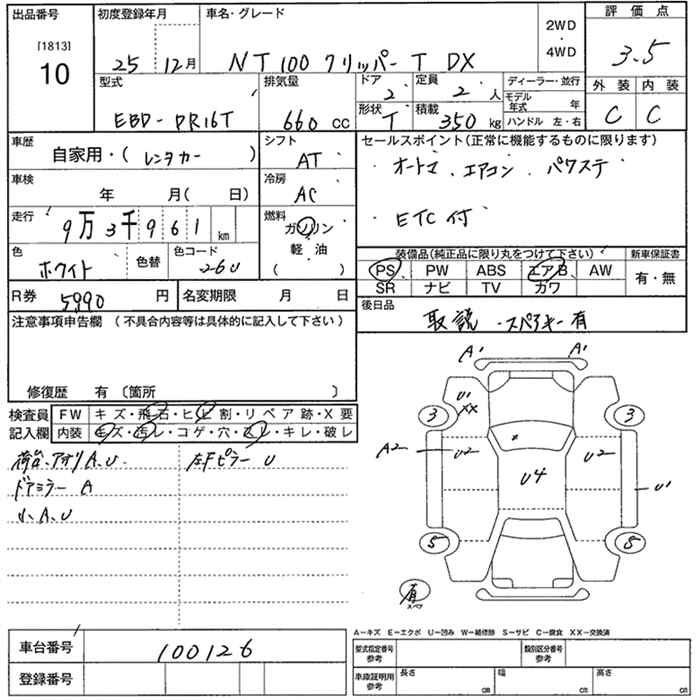 出品番号 初度登録年月 車名・グレード 2WD 評価点
[1813] ・
10 25 12月 NT100 クリッパー T DX 4WD 3.5
型式 排気量 ドア 定員 ディーラー・並行 外装 内装
2 2人 モデル年式 年
EBD-DR16T 660 CC 形状 積載 C C
T 350 kg ハンドル 左・右
車歴 シフト セールスポイント(正常に機能するものに限ります)
自家用・(レンタカー) AT ・オートマ ・エアコン ・パワステ
車検 冷房
年 月( 日) AC ・ETC付
走行 燃料
9万3千961 km ガソリン
色 色替 色コード 軽・油 装備品(純正品に限り丸をつけて下さい) 新車保証書
ホワイト 260 ( ) PS PW ABS エアB AW 有・無
R券 名変期限 SR ナビ TV カワ
5990円 月 日 後日品
注意事項申告欄(不具合内容等は具体的に記入して下さい) 取説 ・スペアキー有
修復歴 有〔箇所 〕
検査員 FW キズ・飛石・ヒビ割・リペア跡・X要
記入欄 内装 キズ・汚レ・コゲ・穴・スレ・キレ・破レ
荷台、アオリA、U 左Fピラー U
ドアミラー A
小、A、U
A' A'
U'
XX
3 3
A2 U2 U2
U4 U'
5 5
有
スペア
A−キズ E−エクボ U−凹み W−補修跡 S−サビ C−腐食 XX−交換済
車台番号 100126 型式指定番号 参考 類別区分番号 参考
登録番号 車庫証明用 参考 長さ cm 幅 cm 高さ cm